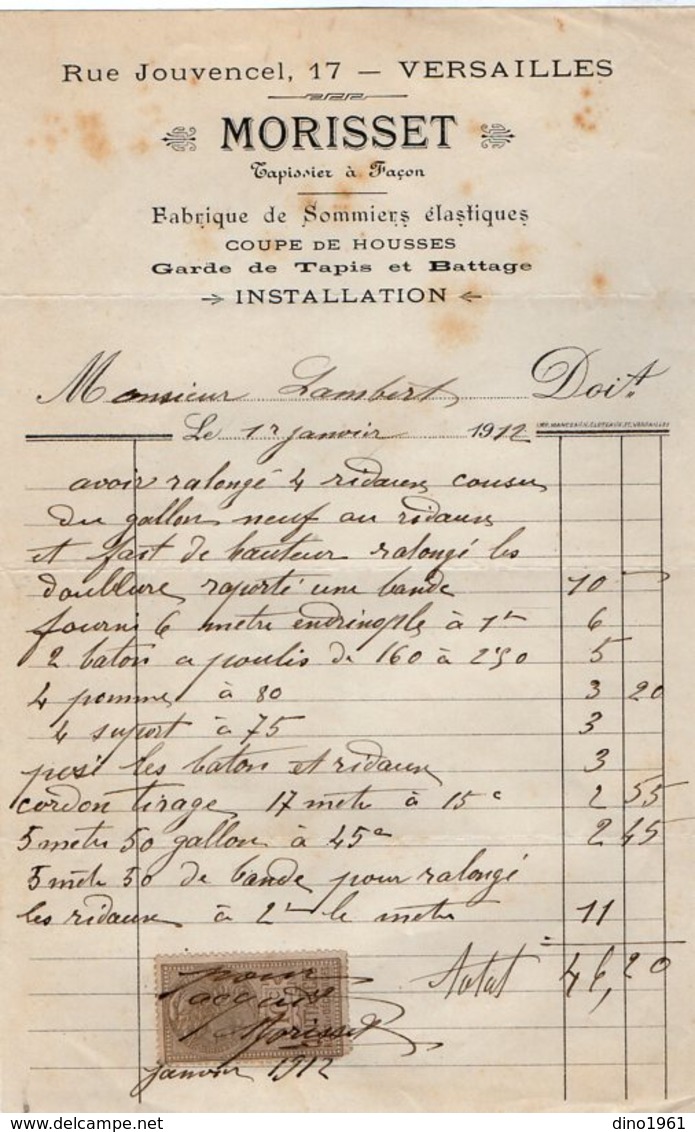 Rue Jouvencel, 17 — VERSAILLES
MORISSET
Tapissier à Façon
Fabrique de Sommiers élastiques
COUPE DE HOUSSES
Garde de Tapis et Battage
INSTALLATION
Monsieur Lambert Doit
Le 1r janvier 1912
avoir ralongé 4 ridaux cousu
du gallon neuf au ridaux
et fait de hauteur ralongé les
doublure raporté une bande 10 —
fourni 6 metre endrinople à 1f 6
2 baton a poulis de 160 à 2f50 5
4 pomme à 80 3 20
4 suport à 75 3
posé les baton et ridaux 3
cordon tirage 17 metre à 15c 2 55
5 metre 50 gallon à 45c 2 45
5 mètre 50 de bande pour ralongé
les ridaux à 2f le metre 11
Total 46,20
pour
acquit
Morisset
janvier 1912
dino1961